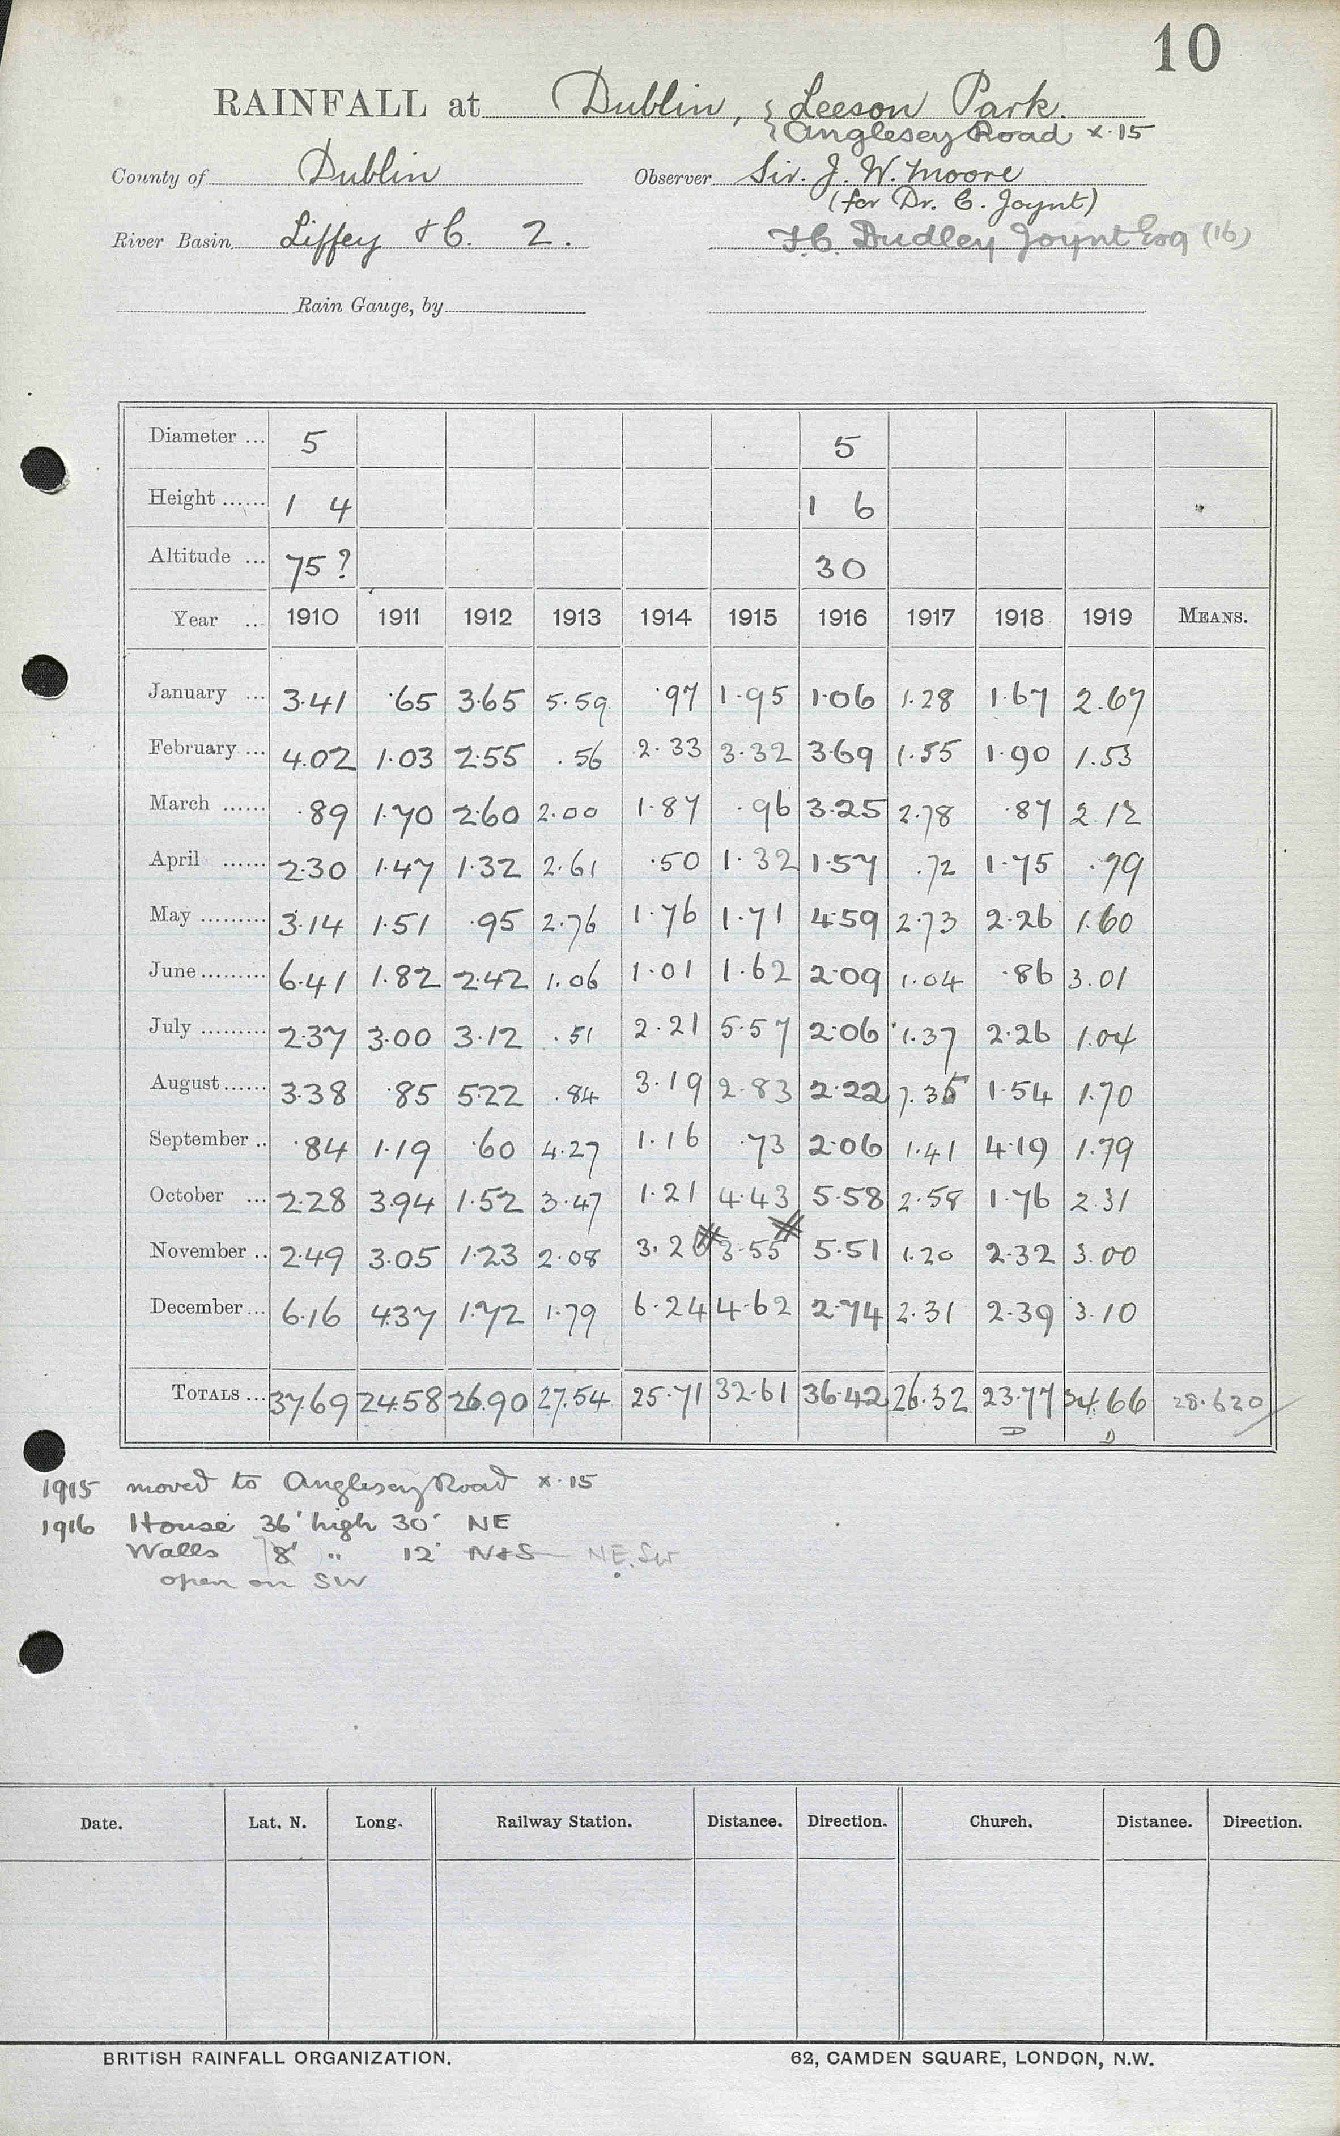 10
RAINFALL at Dublin, { Leeson Park.
{ Anglesey Road x.15
County of Dublin Observer Sir. J. W. Moore
(for Dr. C. Joynt)
River Basin Liffey &C. 2. F.C. Dudley Joynt Esq (16)
Rain Gauge, by
Diameter ... 5 5
Height ...... 1 4 1 6
Altitude ... 75? 30
Year ... 1910 1911 1912 1913 1914 1915 1916 1917 1918 1919 MEANS.
January ... 3.41 .65 3.65 5.59 .97 1.95 1.06 1.28 1.67 2.67
February ... 4.02 1.03 2.55 .56 2.33 3.32 3.69 1.55 1.90 1.53
March ...... .89 1.70 2.60 2.00 1.87 .96 3.25 2.78 .87 2.12
April ...... 2.30 1.47 1.32 2.61 .50 1.32 1.57 .72 1.75 .79
May ......... 3.14 1.51 .95 2.76 1.76 1.71 4.59 2.73 2.26 1.60
June ......... 6.41 1.82 2.42 1.06 1.01 1.62 2.09 1.04 .86 3.01
July ......... 2.37 3.00 3.12 .51 2.21 5.57 2.06 1.37 2.26 1.04
August ...... 3.38 .85 5.22 .84 3.19 2.83 2.22 7.35 1.54 1.70
September .. .84 1.19 .60 4.27 1.16 .73 2.06 1.41 4.19 1.79
October ... 2.28 3.94 1.52 3.47 1.21 4.43 5.58 2.58 1.76 2.31
November .. 2.49 3.05 1.23 2.08 3.26 3.55 5.51 1.20 2.32 3.00
December ... 6.16 4.37 1.72 1.79 6.24 4.62 2.74 2.31 2.39 3.10
TOTALS ... 37.69 24.58 26.90 27.54 25.71 32.61 36.42 26.32 23.77 24.66 28.620
D D
1915 moved to Anglesey Road x.15
1916 House 36' high 30' NE
Walls 8' " 12' N&S NE.SW
open on SW
Date. Lat. N. Long. Railway Station. Distance. Direction. Church. Distance. Direction.
BRITISH RAINFALL ORGANIZATION. 62, CAMDEN SQUARE, LONDON, N.W.